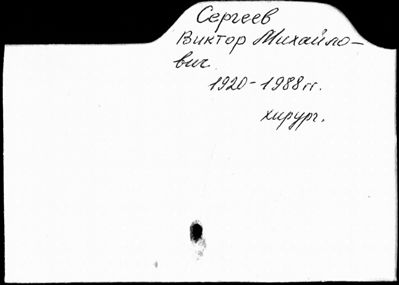 Сергеев
Виктор Михайло-
вич.
1920-1988 гг.
хирург.